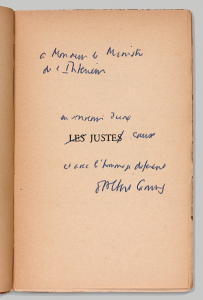 à Monsieur le Ministre
de l'Intérieur
en souvenir d'une
LES JUSTES cause
et avec l'hommage déférent
d'Albert Camus